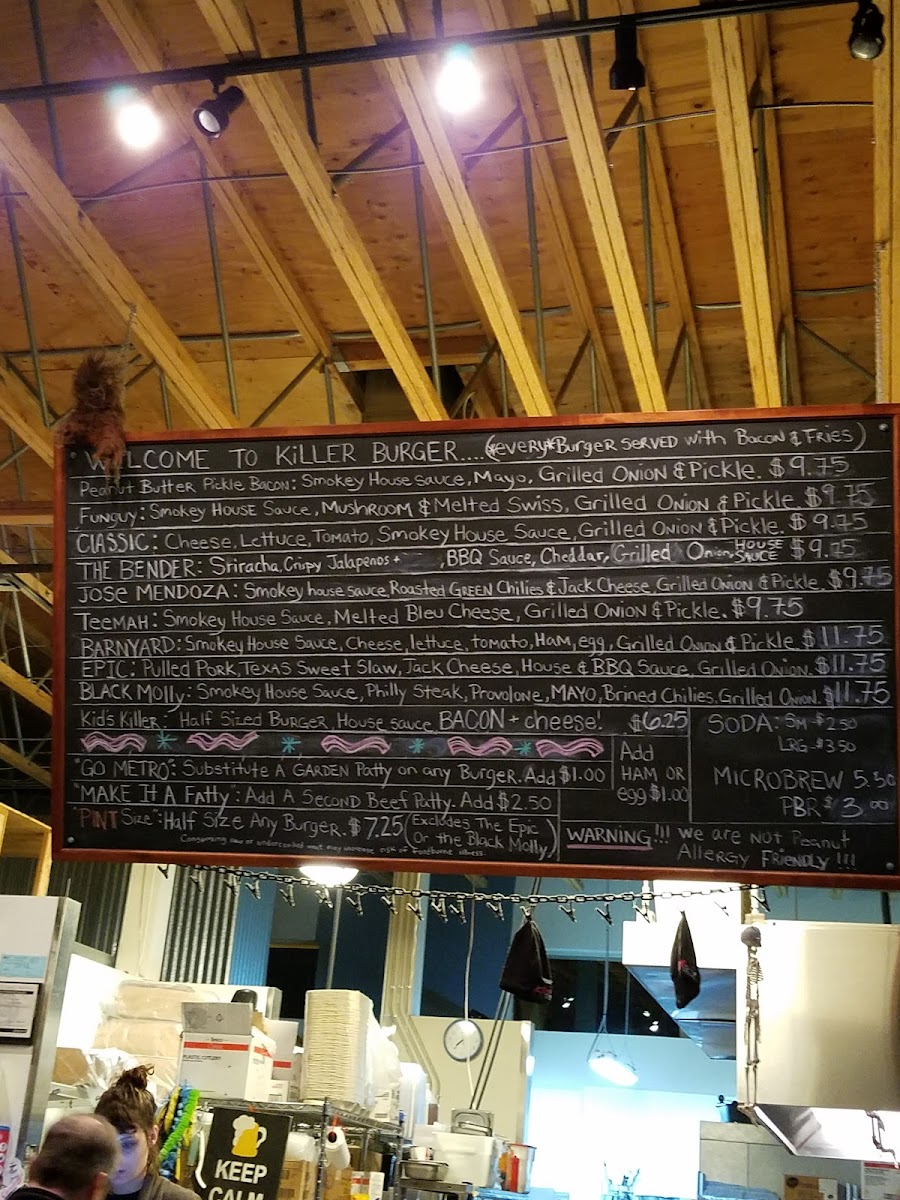 WELCOME TO KILLER BURGER....(*every* Burger SERVED with BACON & FRIES)
Peanut Butter Pickle Bacon: Smokey House Sauce, Mayo, Grilled Onion & Pickle. $9.75
FUNGUY: Smokey House Sauce, Mushroom & Melted Swiss, Grilled Onion & Pickle $9.75
CLASSIC: Cheese, Lettuce, Tomato, Smokey House Sauce, Grilled Onion & Pickle. $9.75
THE BENDER: Sriracha, Crispy Jalapenos + , BBQ Sauce, Cheddar, Grilled Onion, HOUSE SAUCE $9.75
JOSE MENDOZA: Smokey house sauce, Roasted GREEN Chilies & Jack Cheese, Grilled Onion & Pickle. $9.75
TEEMAH: Smokey House Sauce, Melted Bleu Cheese, Grilled Onion & Pickle. $9.75
BARNYARD: Smokey House Sauce, Cheese, lettuce, tomato, Ham, egg, Grilled Onion & Pickle $11.75
EPIC: Pulled Pork, Texas Sweet Slaw, Jack Cheese, House & BBQ Sauce, Grilled Onion. $11.75
BLACK MOLLY: Smokey House Sauce, Philly Steak, Provolone, MAYO, Brined Chilies, Grilled Onion. $11.75
Kid's Killer: Half Sized Burger, House sauce BACON + cheese! $6.25
"GO METRO": Substitute A GARDEN Patty on any Burger. Add $1.00
"MAKE It A Fatty": Add A Second Beef Patty. Add $2.50
PINT Size": Half Size Any Burger. $7.25 (Excludes The Epic
Or the Black Molly)
Consuming raw or undercooked meat may increase risk of foodborne illness.
Add
HAM OR
egg $1.00
SODA: Sm $2.50
LRG $3.50
MICROBREW 5.50
PBR $3.00
WARNING!!! We are NOT Peanut
Allergy Friendly!!!
KEEP
CALM